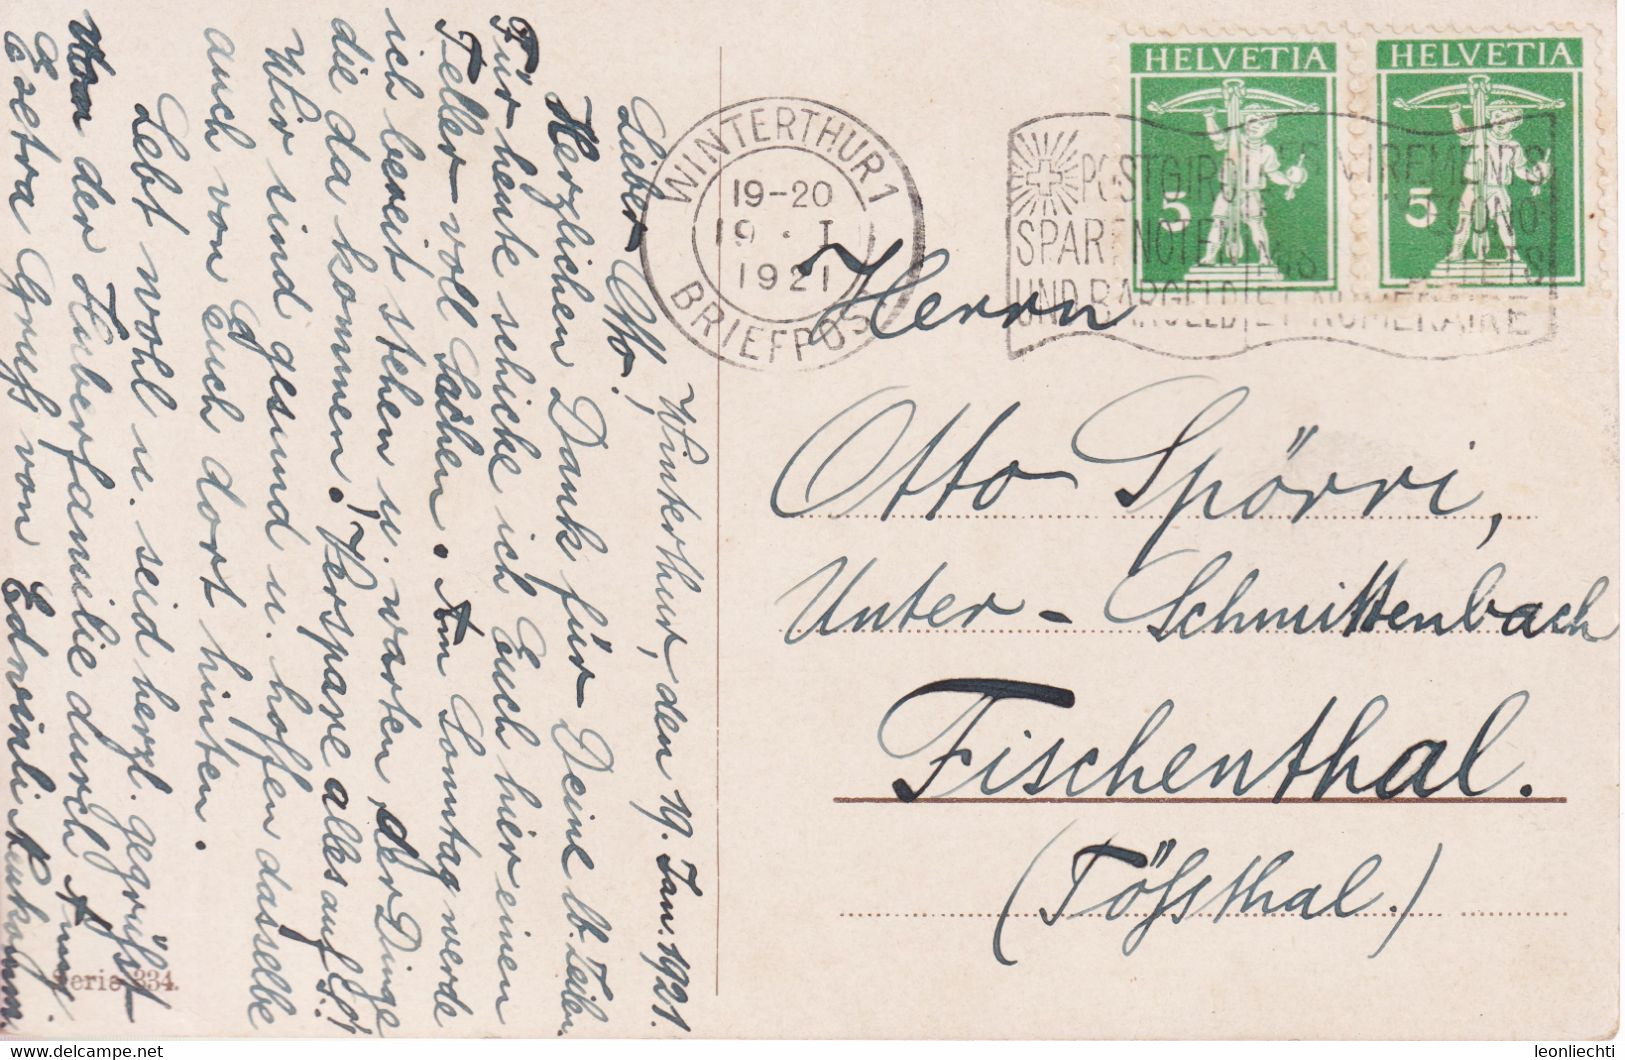 Winterthur, den 19. Jan. 1921.
Lieber Otto!
Herzlichen Dank für Deine lb. Zeilen.
Für heute schicke ich Euch hier einen
Teller voll Sachen. Am Sonntag werde
ich bereit stehen u. warten, der Dinge
die da kommen. Verspare alles auf S.!
Wir sind gesund u. hoffen dasselbe
auch von Euch dort hinten.
Lebt wohl u. seid herzl. gegrüßt
von der Huberfamilie durch
Extra Gruß von Edwinli
Serie 334.
WINTERTHUR 1
19-20
19. I
1921
BRIEFPOST
POSTGIRO VIREMENTS
SPART NOTEN
UND BARGELD ET NUMERAIRE
HELVETIA
5
HELVETIA
5
Herrn
Otto Spörri,
Unter-Schmittenbach
Fischenthal.
(Tößthal.)
leonliechti